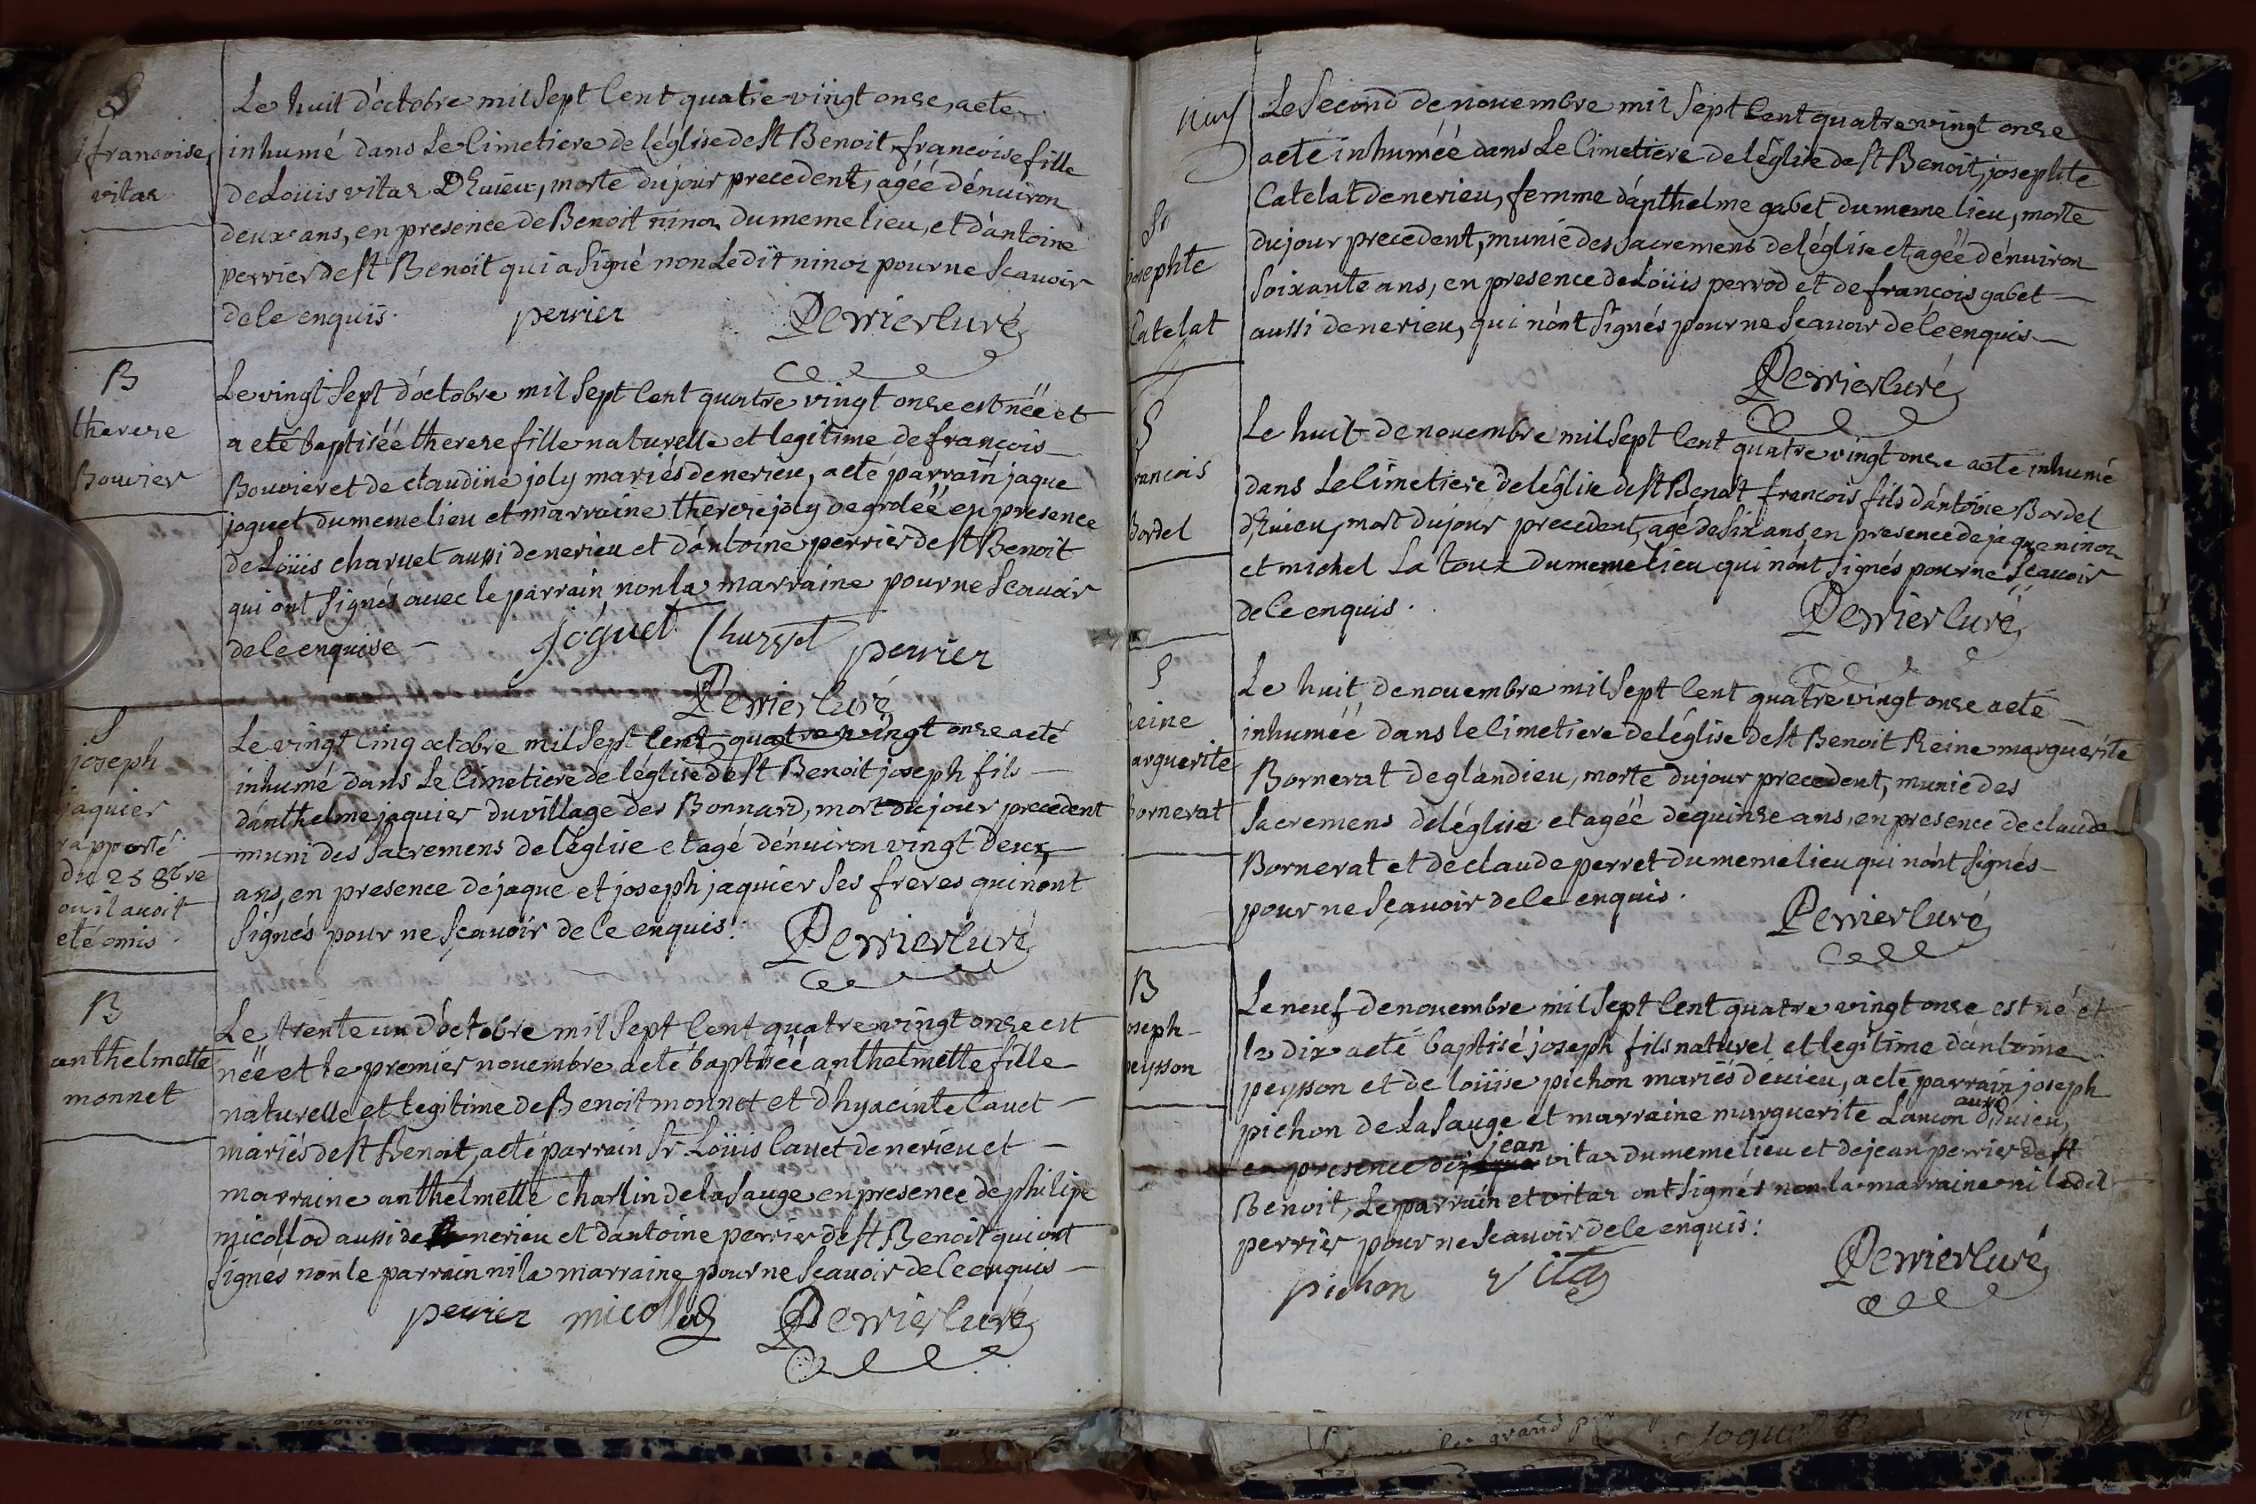 S
francoise
vitaz
Le huit d'octobre mil sept cent quatre vingt onze, a eté
inhumé dans le cimetiere de léglise de st Benoit francoise fille
de Loüis vitaz D'Evieu, morte du jour precedent, agéé dénuiron
deux ans, en presence de Benoit ninoz du meme lieu, et dántoine
perrier de st Benoit qui a signé non ledit ninoz pour ne scauoir
de ce enquis. perrier Perrier Curé
B
therese
Bouvier
Le vingt sept d'octobre mil sept cent quatre vingt onze est néé et
a eté baptiséé therese fille naturelle et legitime de francois
Bouvier et de claudine joly mariés de nerieu, a eté parrain jaque
joquet du meme lieu et marraine therese joly de groléé en presence
de Loüis charuet aussi de nerieu et dántoine perrier de st Benoit
qui ont signés auec le parrain, non la marraine pour ne scauoir
de ce enquise joguet Charuet perrier
Perrier Curé
S
joseph
jaquier
rapporté
du 25 8bre
ou il avoit
eté omis
Le vingt cinq octobre mil sept cent quatre vingt onze a eté
inhumé dans le cimetiere de léglise de st Benoit joseph fils
dánthelme jaquier du village des Bonnard, mort du jour precedent
muni des sacremens de léglise et agé dénuiron vingt deux
ans, en presence de jaque et joseph jaquier ses freres qui nónt
signés pour ne scauoir de ce enquis. Perrier Curé
B
anthelmette
monnet
Le trente un d'octobre mil sept cent quatre vingt onze est
néé et le premier novembre a eté baptiséé anthelmette fille
naturelle et legitime de Benoit monnet et d'hyacinte Cauet
mariés de st Benoit, a eté parrain Sr Loüis Cauet de nerieu et
marraine anthelmette charlin de la Sauge en presence de philipe
micollod aussi de nerieu et dántoine perrier de st Benoit qui ont
signés non le parrain ni la marraine pour ne scauoir de ce enquis
perrier micollod Perrier Curé
josephte
Catelat
Le second de nouembre mil sept cent quatre vingt onze
a eté inhuméé dans le cimetiere de léglise de st Benoit, josephte
Catelat de nerieu, femme dánthelme gabet du meme lieu, morte
du jour precedent, munie des sacremens de léglise et agéé dénuiron
soixante ans, en presence de Loüis perrod et de francois gabet
aussi de nerieu, qui nónt signés pour ne scauoir de ce enquis
Perrier Curé
S
francois
Bordel
Le huit de nouembre mil sept cent quatre vingt onze a eté inhumé
dans le cimetiere de léglise de st Benoit francois fils dántoine Bordel
d'Evieu, mort du jour precedent, agé de six ans, en presence de jaque ninoz
et michel La touz du meme lieu qui nónt signés pour ne scauoir
de ce enquis. Perrier Curé
S
Reine
marguerite
Bornerat
Le huit de nouembre mil sept cent quatre vingt onze a eté
inhuméé dans le cimetiere de léglise de st Benoit Reine marguerite
Bornerat de glandieu, morte du jour precedent, munie des
sacremens de léglise et agéé de quinze ans, en presence de claude
Bornerat et de claude perret du meme lieu qui nónt signés
pour ne scauoir de ce enquis. Perrier Curé
B
joseph
peysson
Le neuf de nouembre mil sept cent quatre vingt onze est né et
le dix a eté baptisé joseph fils naturel et legitime dántoine
peysson et de loüise pichon mariés d'euieu, a eté parrain joseph
pichon de la Sauge et marraine marguerite Lancon aussi d'Euieu,
en presence de jean vitaz du meme lieu et de jean perrier de st
Benoit, Le parrain et vitaz ont signés non la marraine ni ledit
perrier pour ne scauoir de ce enquis.
pichon vitaz Perrier Curé